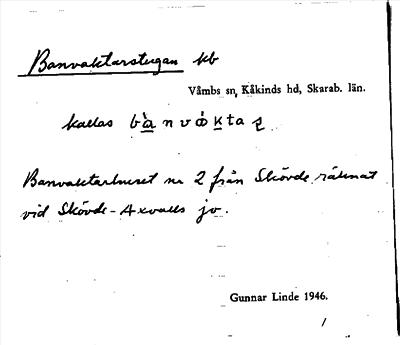 Banvaktarstugan kb
Våmbs sn, Kåkinds hd, Skarab. län.
kallas
Banvaktarhuset nr 2 från Skövde räknat
vid Skövde-Axvalls jv.
Gunnar Linde 1946.
1